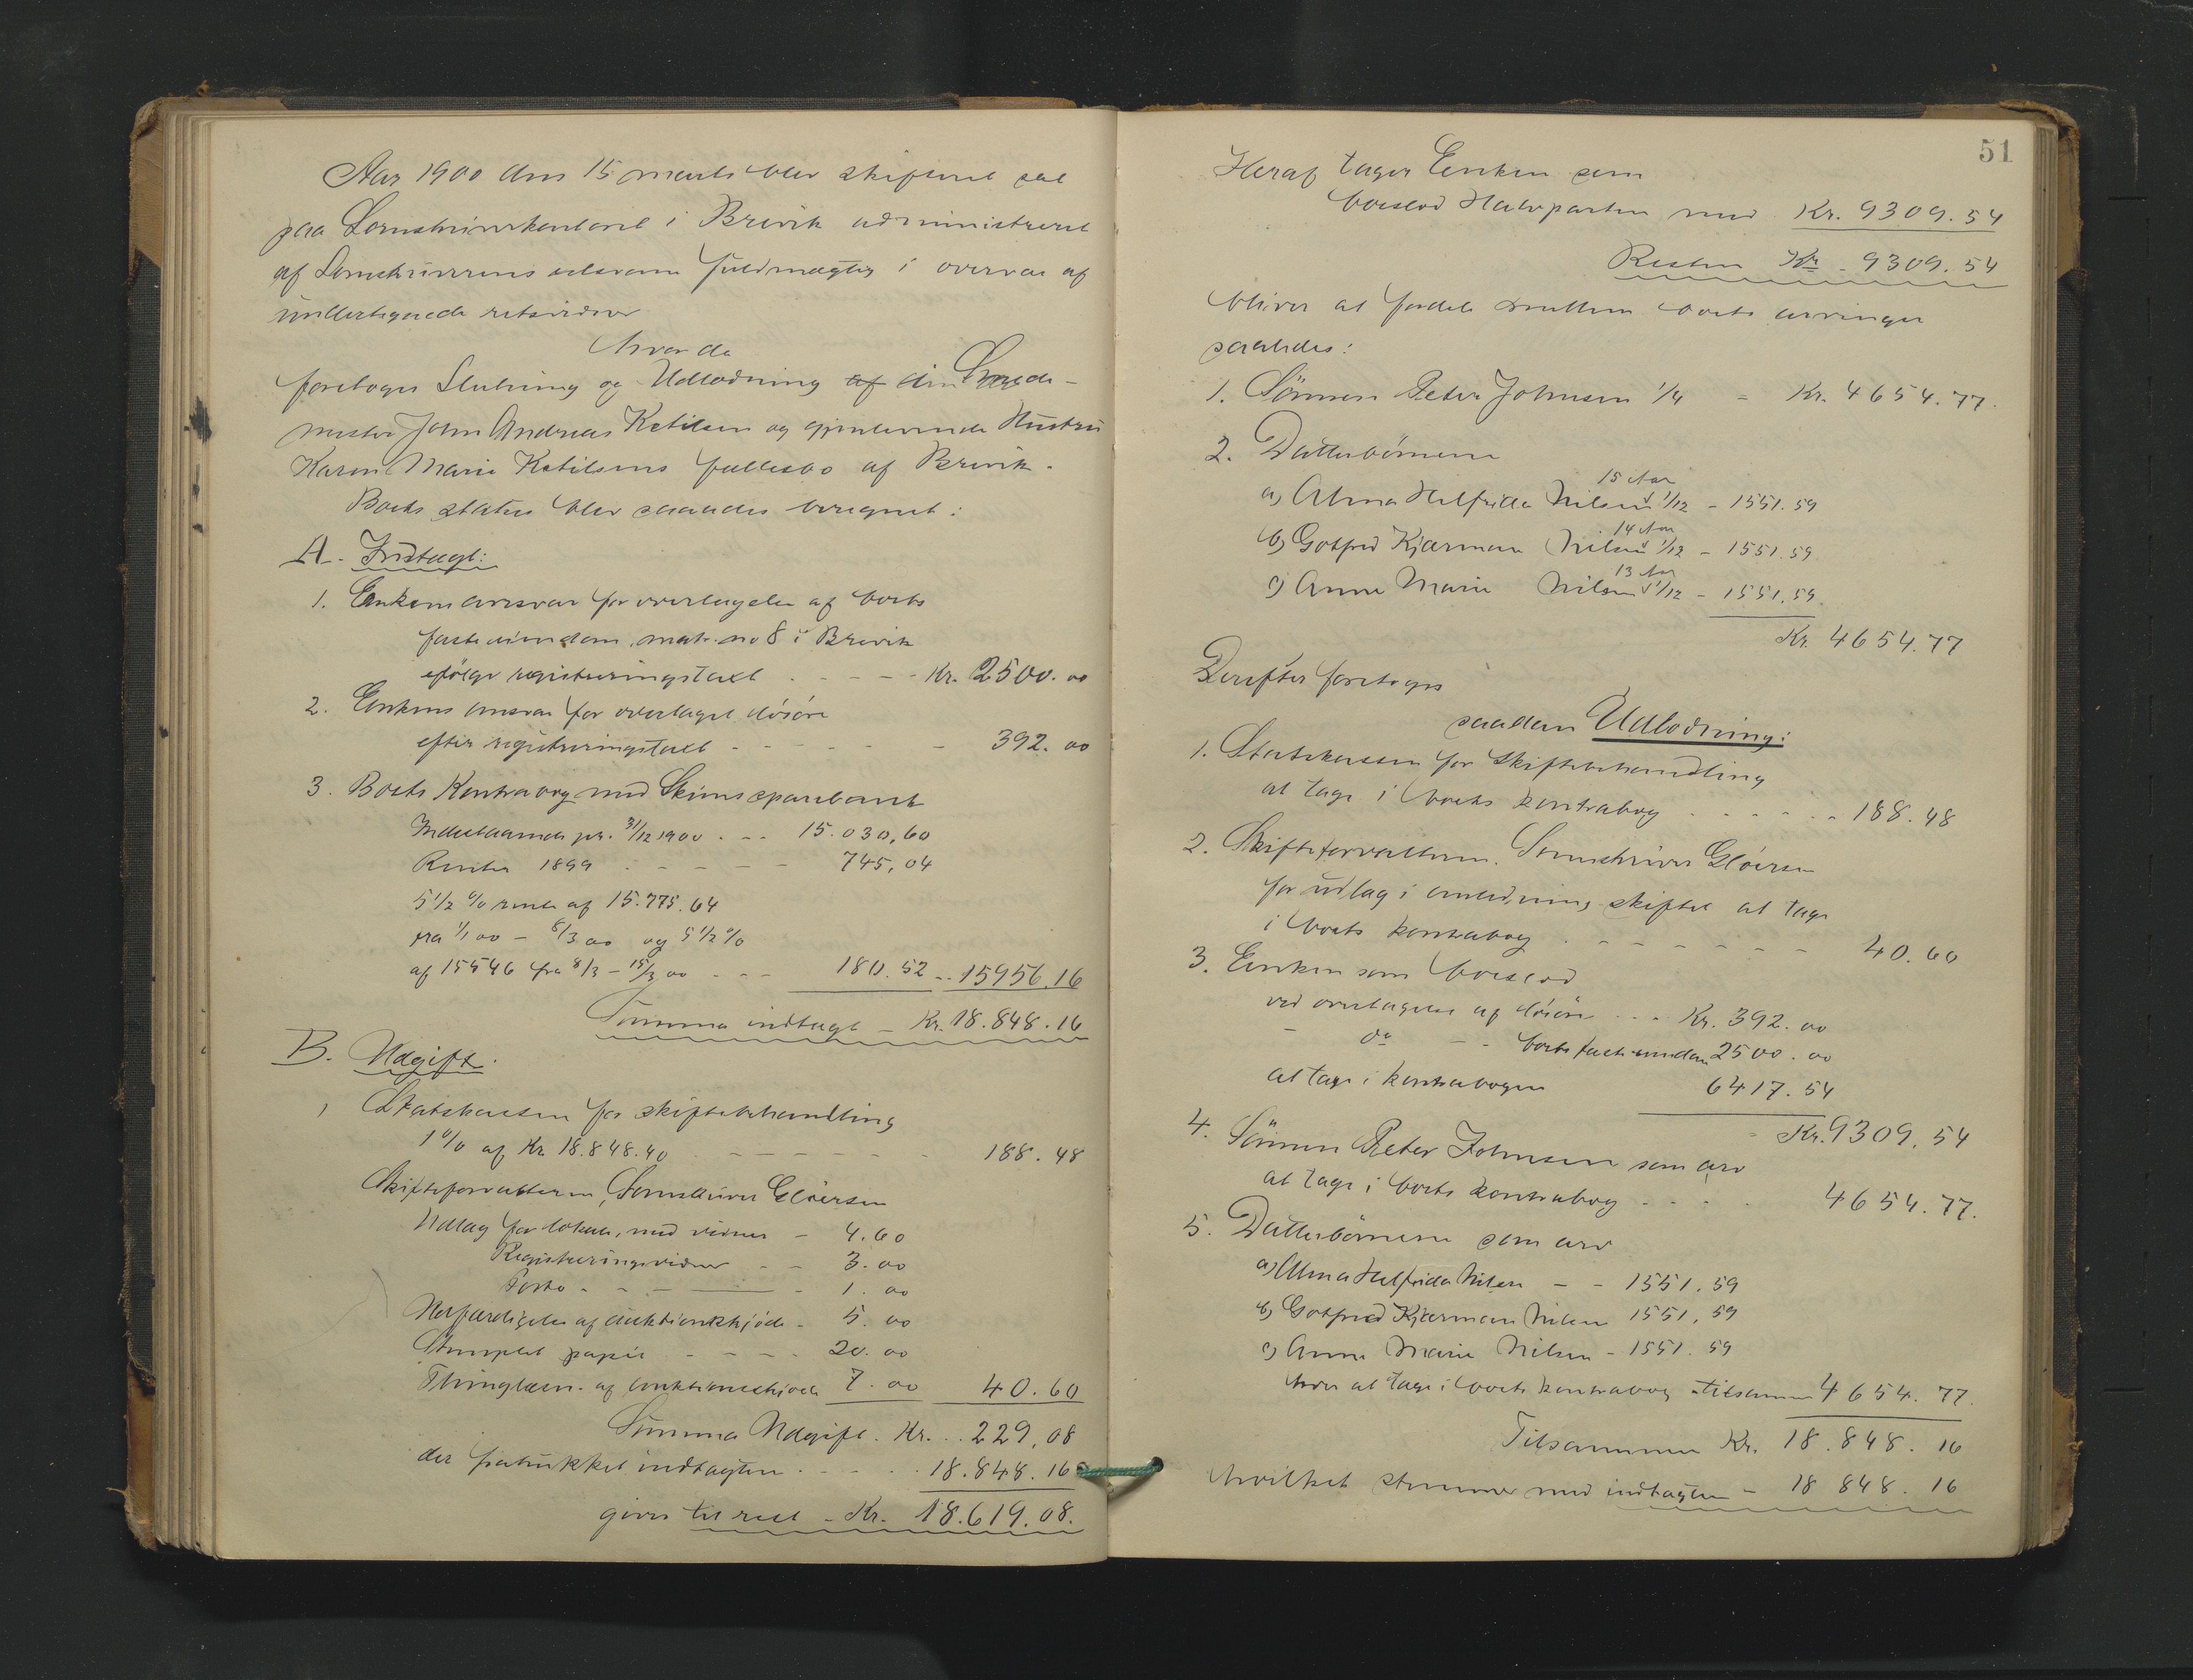 Aar 1900 den 15 marts blev skifteret sat
paa Sorenskriverkontoret i Brevik administreret
af Sorenskriverens edsvorne fuldmægtig i overvær af
undertegnede retsvidner
Hvorda
foretoges Slutning og Udlodning af den Smede-
mester John Andreas Ketilsen og gjenlevende Hustru
Karen Marie Ketilsens fællesbo af Brevik.
Boets status blev saaledes beregnet:
A. Indtægt:
1. Enkens ansvar for overtagelse af boets
faste eiendom, matr. no 8 i Brevik
ifølge registreringstaxt - - - - Kr. 2500.00
2. Enkens ansvar for overtaget løsøre
efter registreringstaxt - - - - - 392.00
3. Boets Kontrabog med Skiens sparebank
Indestaaende pr. 31/12 1900 . - - 15.030,60
Renter 1899 - - - - - 745,04
5 1/2 % rente af 15.775.64
fra 1/1 00 - 8/3 00 og 5 1/2 %
af 15546 fra 8/3 - 15/3 00 - - - 180.52 - - 15956.16
Summa indtægt - Kr. 18.848.16
B. Udgift.
1 Statskassen for skiftebehandling
1 % af Kr 18.848.40 - - - - - - - 188.48
Skifteforvalteren, Sorenskriver Gløersen
Udlag for lokale, med vidner - 4.60
Registreringsvidner - - 3.00
Porto - - - - 1.00
Udfærdigelse af auktionsskjøde - 5.00
Stemplet papir - - - - 20.00
Thinglæsn. af auktionsskjøde 7.00 40.60
Summa Udgift. Kr. .. 229,08
der fratrukket indtægten - - - - 18.848.16
giver til rest - Kr. 18.619.08.
51
Heraf tager Enken som
boeslod Halvparten med Kr. 9309.54
Resten Kr. 9309.54
bliver at fordele mellem boets arvinger
saaledes:
1. Sønnen Peter Johnsen 1/4 = Kr. 4654.77.
2. Datterbørnene
15 Aar
a) Alma Halfrida Nilsen 1/12 - 1551.59
14 Aar
b) Gotfred Kjærman Nilsen 1/12 - 1551.59.
13 Aar
c) Anna Marie Nilsen 1/12 - 1551.59.
Kr. 4654.77
Derefter foretoges
saadan Udlodning:
1. Statskassen for Skiftebehandling
at tage i boets kontrabog - - - - - - 188.48
2. Skifteforvalteren. Sorenskriver Gløersen
for udlag i anledning skiftet at tage
i boets kontrabog - - - - - - - - 40.60
3. Enken som boeslod
ved overtagelse af løsøre - - - Kr. 392.00
- do - - boets faste eiendom 2500.00
at tage i kontrabogen 6417.54
Kr. 9309.54
4. Sønnen Peter Johnsen som arv
at tage i boets kontrabog - - - - 4654.77.
5. Datterbørnene som arv
a) Alma Halfrida Nilsen - - 1551.59
b) Gotfred Kjærman Nilsen 1551.59
c) Anna Marie Nilsen - 1551.59
hver at tage i boets kontrabog tilsammen 4654.77.
Tilsammen Kr. 18.848.16
hvilket stemmer med indtægten - 18 848.16